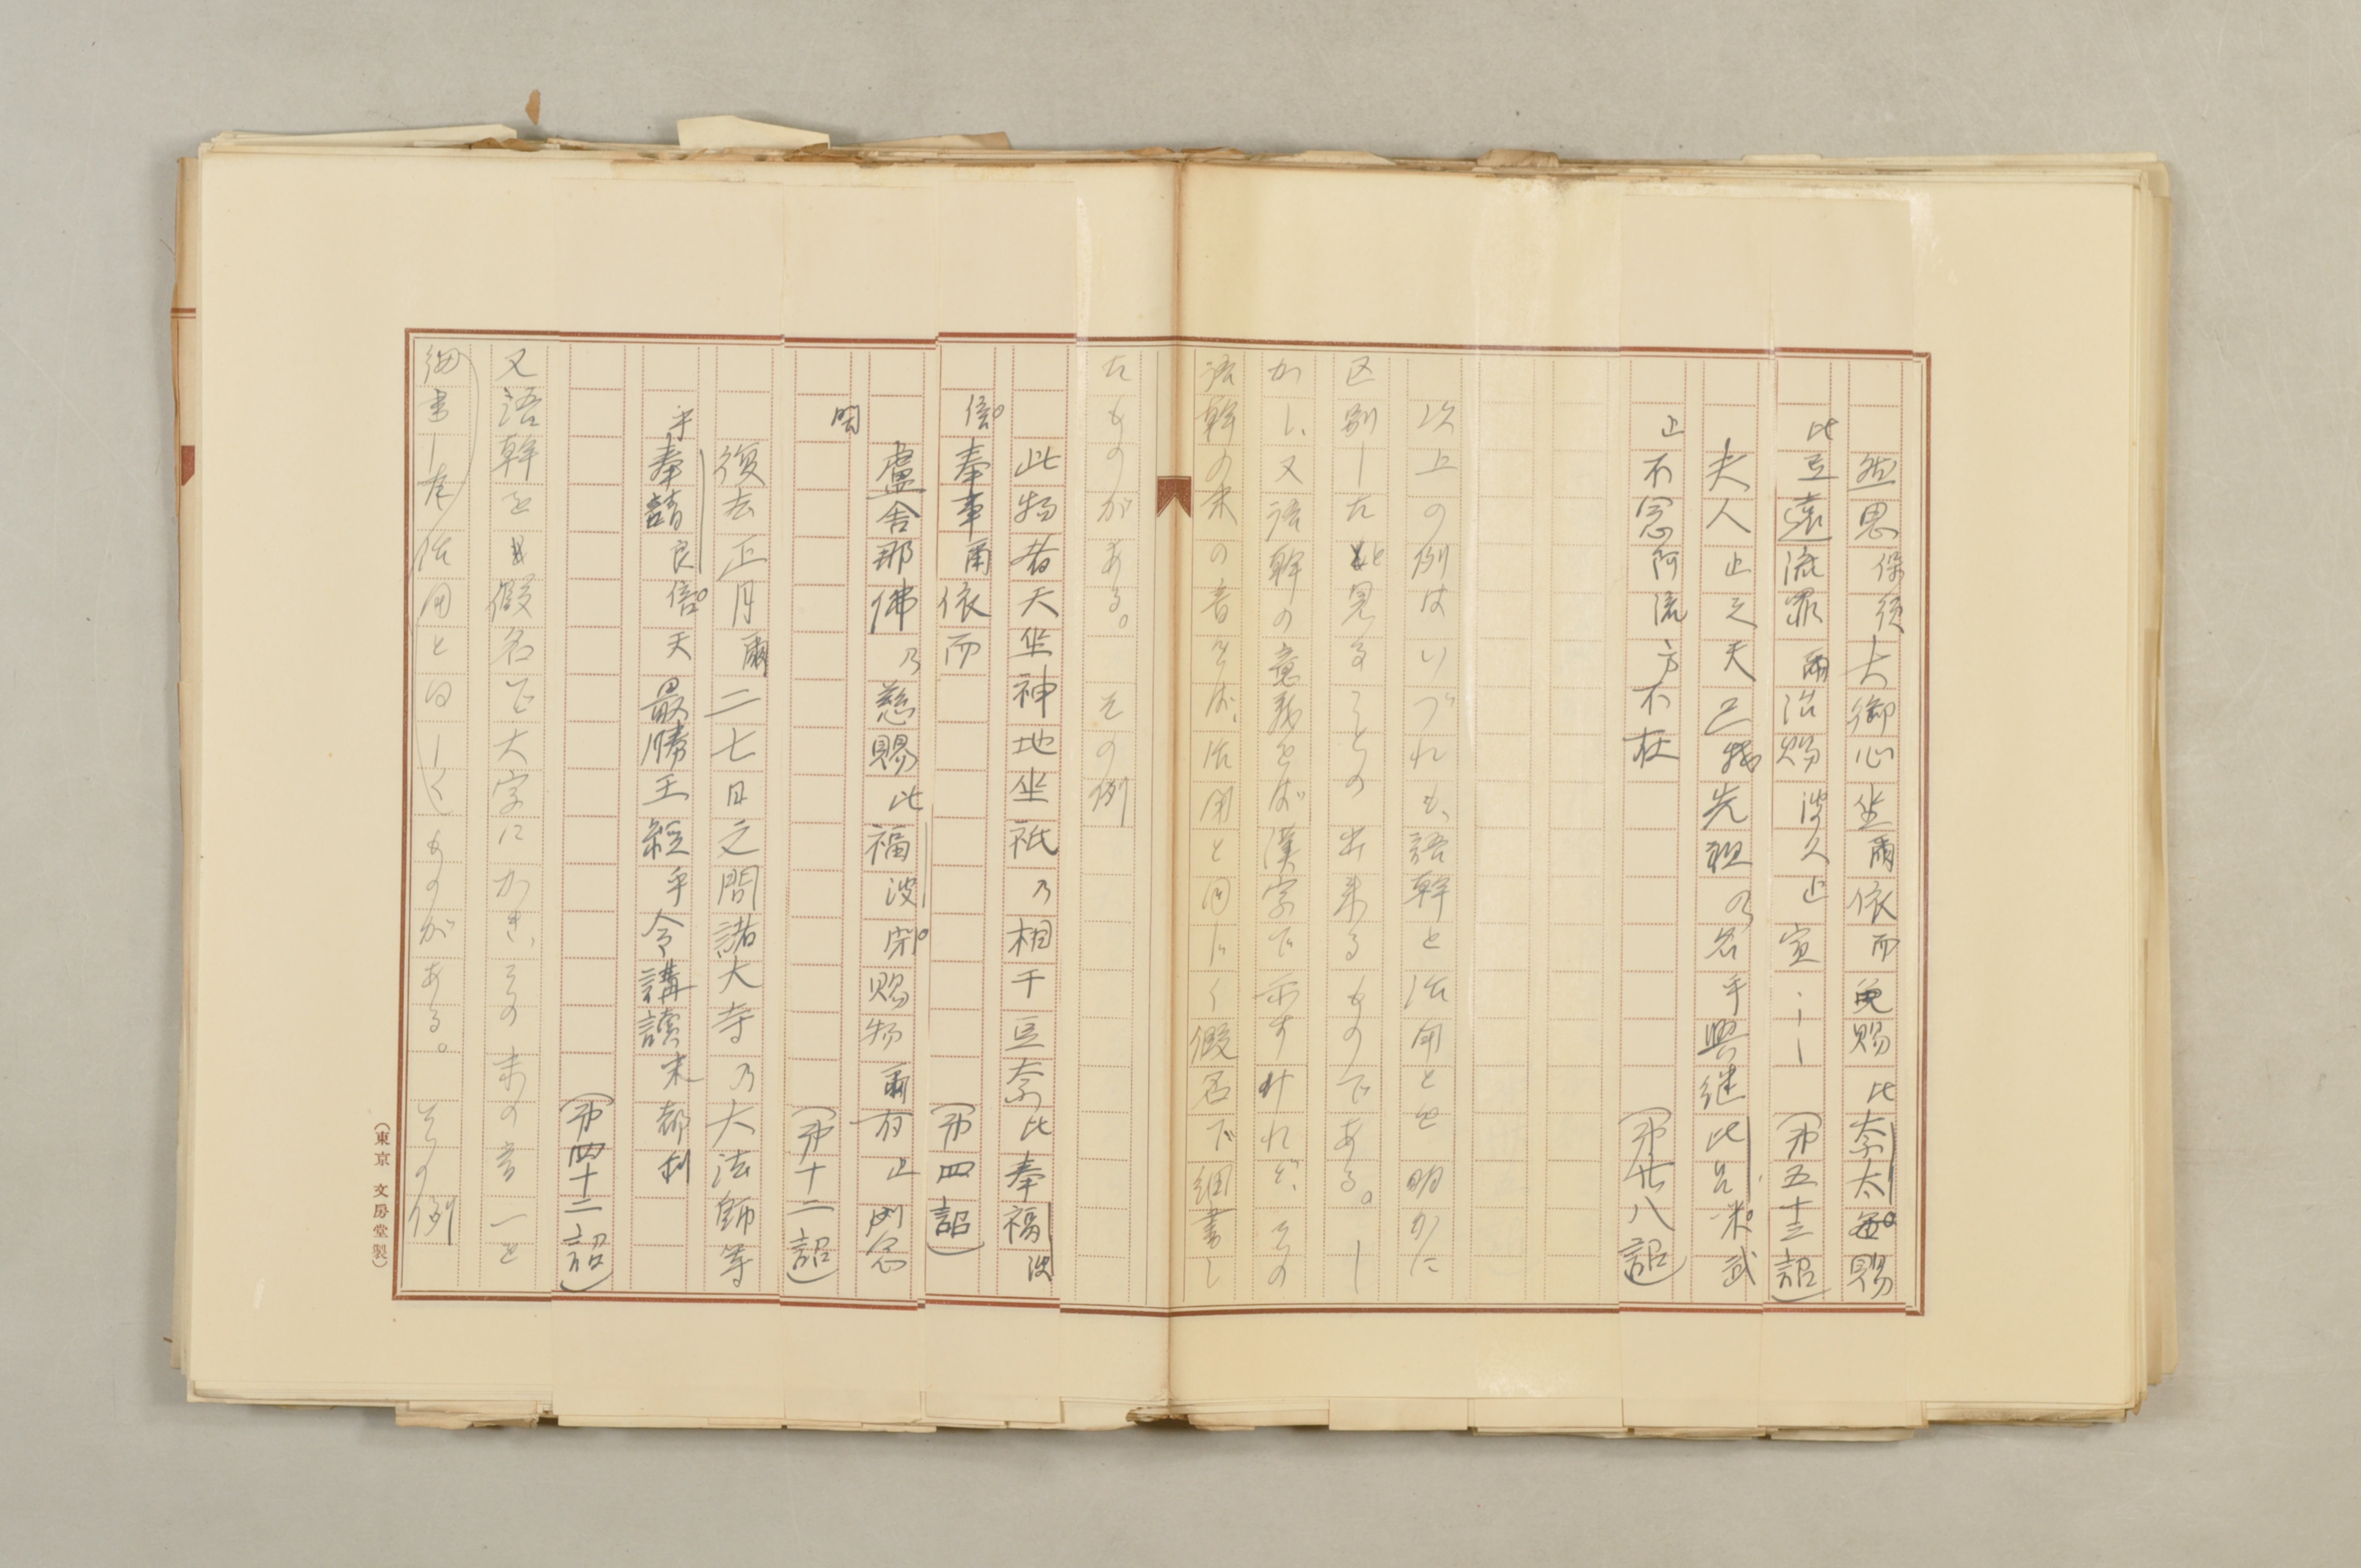 然思保須大御心坐爾依而免賜比奈太毎賜
比弖遠流罪爾治賜波久止宣……(第五十三詔)
夫人止之天己我先祖乃名乎興継比呂米武
止不念阿流方不在(第廿八詔)
以上の例はいづれも、語幹と活用とを明かに
区別したと見ることの出来るものである。し
かし、又語幹の意義をば漢字で示すけれど、その
語幹の末の音をば、活用と同じく假名で細書し
たものがある。その例
此物者天坐神地坐祇乃相于豆奈比奉福波
倍奉事爾依而(第四詔)
盧舎那佛乃慈賜比福波閇賜物爾有止所念
閇(第十二詔)
復去正月爾二七日之間諸大寺乃大法師等
乎奉請良倍天最勝王経乎令講讀末都利
(第四十二詔)
又語幹を假名で大字にかき、その末の音一を
細書し活用と同しくしたものがある。その例
(東京 文房堂製)